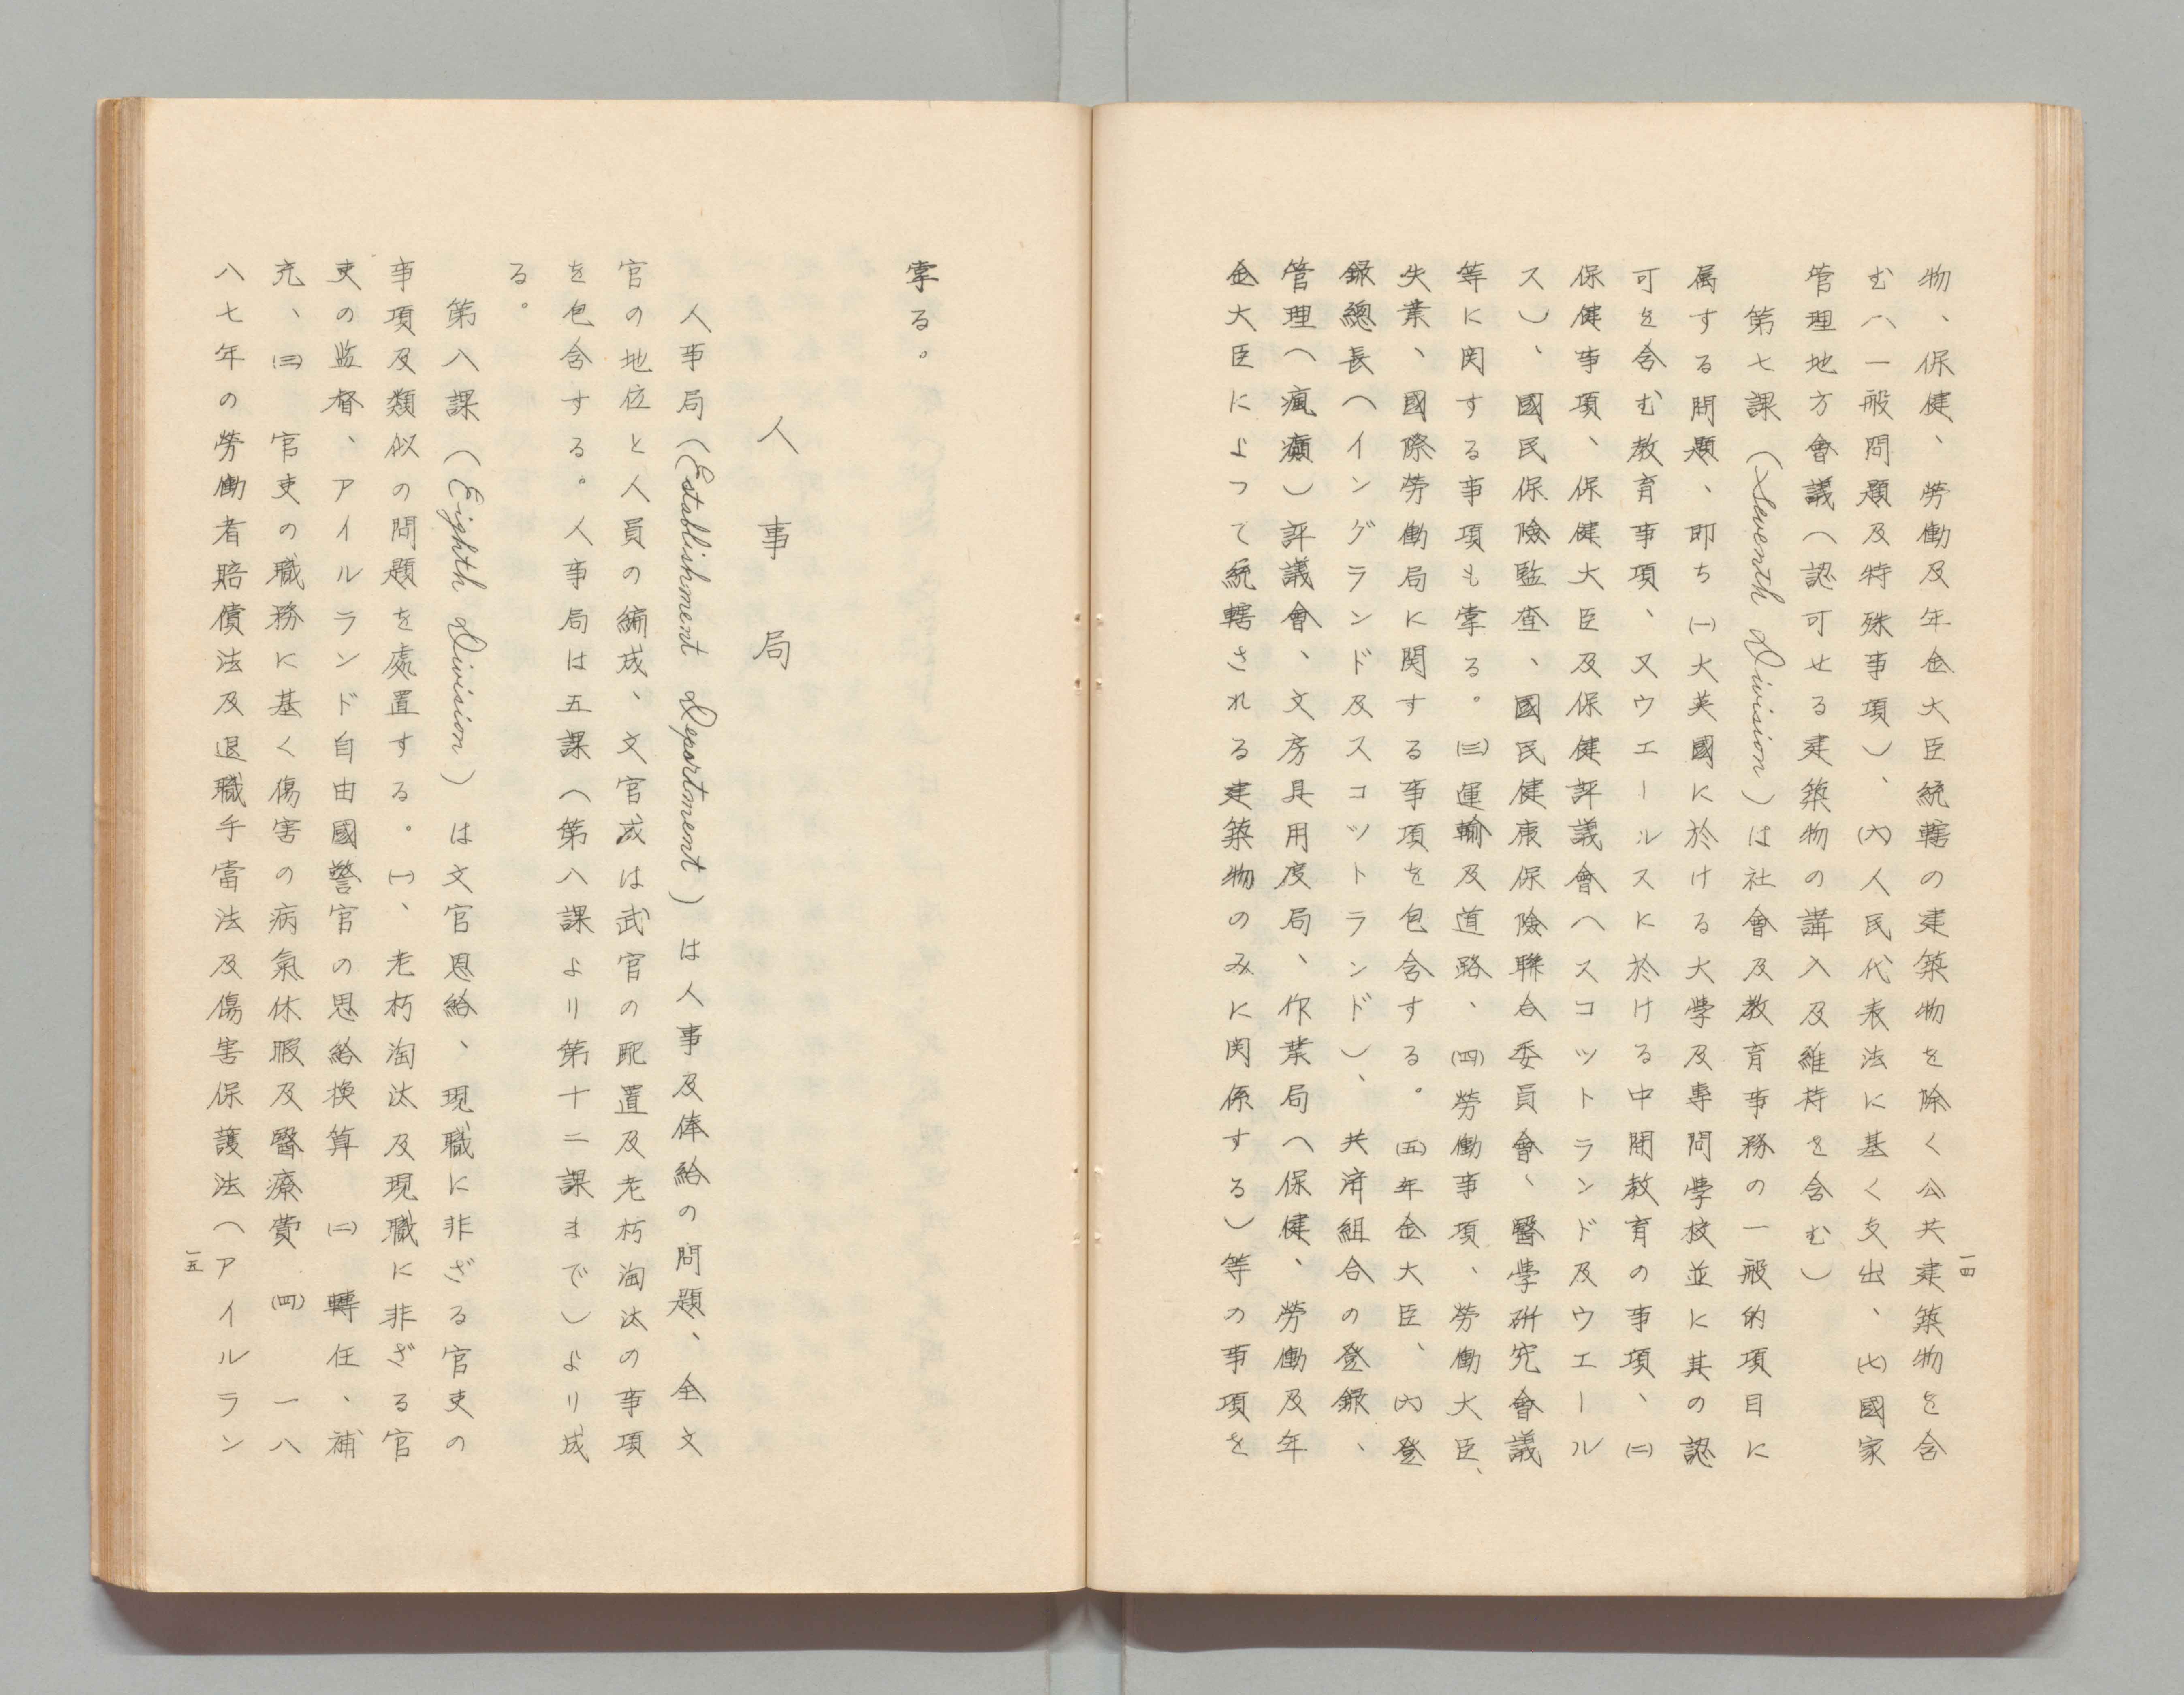 物、保健、勞働及年金大臣統轄の建築物を除く公共建築物を含
む(一般問題及特殊事項)、㈥人民代表法に基く支出、㈦國家
管理地方會議(認可せる建築物の講入及維持を含む)
第七課(Seventh Division)は社會及教育事務の一般的項目に
属する問題、即ち㈠大英國に於ける大學及專問學校並に其の認
可を含む教育事項、又ウエールスに於ける中間教育の事項、㈡
保健事項、保健大臣及保健評議會(スコットランド及ウエール
ス)、國民保險監査、國民健康保險聯合委員會、醫學研究會議
等に関する事項も掌る。㈢運輸及道路、㈣勞働事項、勞働大臣、
失業、國際勞働局に関する事項を包含する。㈤年金大臣、㈥登
録總長(イングランド及スコットランド)、共済組合の登録、
管理(瘋癲)評議會、文房具用度局、作業局(保健、勞働及年
金大臣によつて統轄される建築物のみに関係する)等の事項を
一四
掌る。
人事局
人事局(Establishment Department)は人事及俸給の問題、全文
官の地位と人員の編成、文官或は武官の配置及老朽淘汰の事項
を包含する。人事局は五課(第八課より第十二課まで)より成
る。
第八課(Eighth Division)は文官恩給、現職に非ざる官吏の
事項及類似の問題を處置する。㈠、老朽淘汰及現職に非ざる官
吏の監督、アイルランド自由國警官の恩給換算 ㈡ 轉任、補
充、㈢ 官吏の職務に基く傷害の病氣休暇及醫療費 ㈣ 一八
八七年の勞働者賠償法及退職手當法及傷害保護法(アイルラン
一五